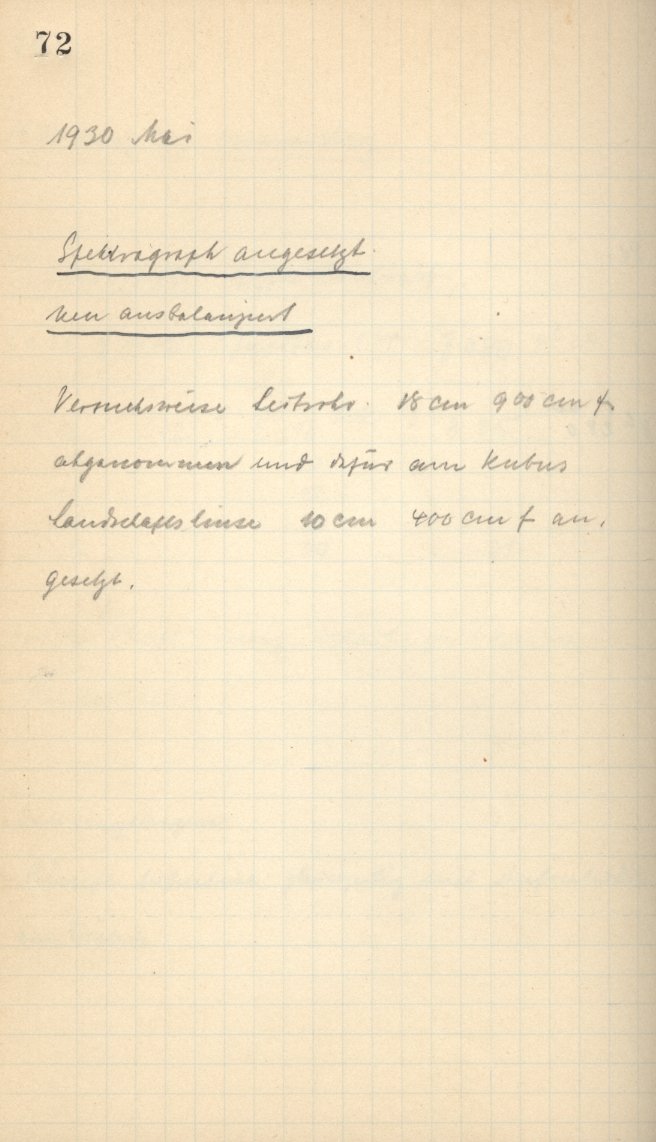 72
1930 Mai
Spektrograph angesetzt.
Neu ausbalanziert
Versuchsweise Leitrohr 18 cm 900 cm f.
abgenommen und dafür am Kubus
Landschaftslinse 10 cm 400 cm f an.
gesetzt.